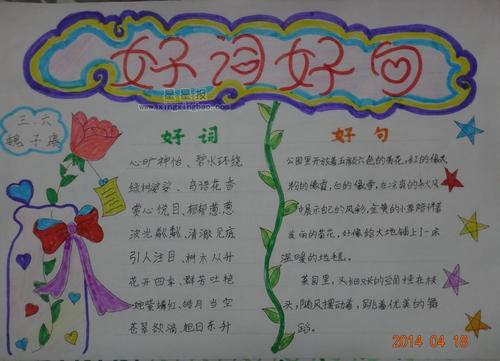 好词好句
星星报
www.xingxingbao.com
三、六
魏子
好词
心旷神怡、碧水环绕
绿树婆娑、鸟语花香
赏心悦目、郁郁葱葱
波光粼粼、清澈见底
引人注目、树木从升
花开四季、群芳吐艳
姹紫嫣红、皓月当空
苍翠欲滴、旭日东升
好句
公园里开放着五颜六色的菊花,红的像火
粉的像霞,白的像雪,在凉爽的秋风
中展示自己的风彩,金黄的小草陪伴着
美丽的菊花,好像给大地铺上了一床
温暖的地毯。
菜园里,又细又长的豆角挂在枝
头,随风摆动着,跳着优美的舞
蹈。
2014 04 18